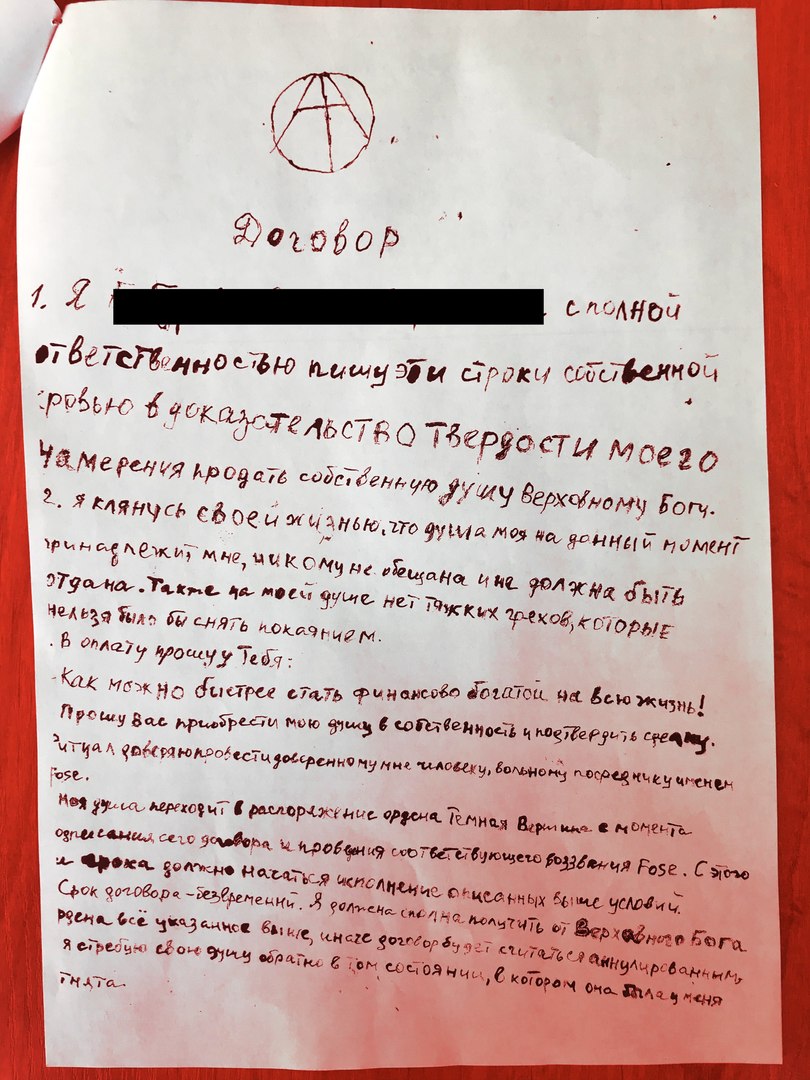 Договор
1. Я с полной
ответственностью пишу эти строки собственной
кровью в доказательство твердости моего
намерения продать собственную душу Верховному Богу.
2. Я клянусь своей жизнью, что душа моя на данный момент
принадлежит мне, никому не обещана и не должна быть
отдана. Также на моей душе нет тяжких грехов, которые
нельзя было бы снять покаянием.
. В оплату прошу у Тебя:
Как можно быстрее стать финансово богатой на всю жизнь!
Прошу Вас приобрести мою душу в собственность и подтвердить сделку.
Ритуал доверяю провести доверенному мне человеку, вольному посреднику именем
Fose.
Моя душа переходит в распоряжение ордена Темная Вершина с момента
одписания сего договора и проведния соответствующего воззвания Fose. С этого
и срока должно начаться исполнение описанных выше условий.
Срок договора - безвременний. Я должна сполна получить от Верховного Бога
рдена всё указанное выше, иначе договор будет считаться аннулированным,
я стребую свою душу обратно в том состоянии, в котором она была у меня